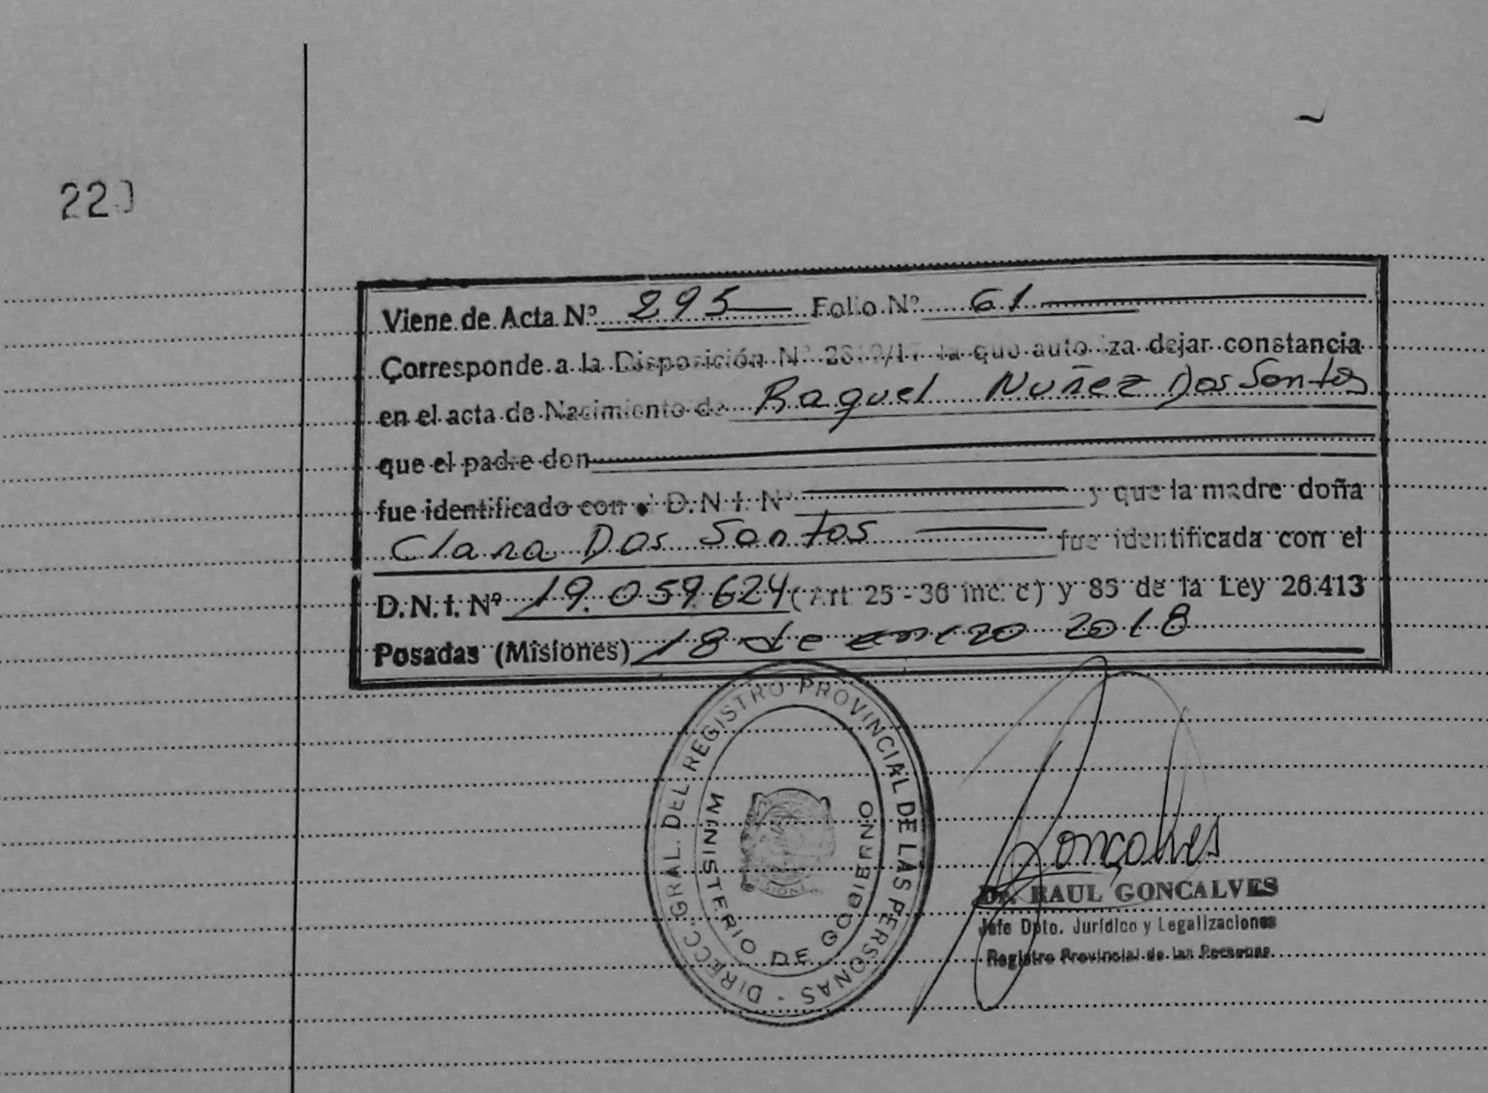 220
Viene de Acta Nº 295 Folio Nº 61
Corresponde a la Disposición Nº la que autoriza dejar constancia
en el acta de Nacimiento de Raquel Nuñez Dos Santos
que el padre don
fue identificado con el D.N.I. Nº y que la madre doña
Clara Dos Santos fue identificada con el
D.N.I. Nº 19.059.624 (Art. 25 - 36 inc. c) y 85 de la Ley 26.413
Posadas (Misiones) 18 de enero 2018
DIRECC. GRAL. DEL REGISTRO PROVINCIAL DE LAS PERSONAS -
MINISTERIO DE GOBIERNO
Gonçalves
Dr. RAUL GONCALVES
Jefe Dpto. Jurídico y Legalizaciones
Registro Provincial de las Personas